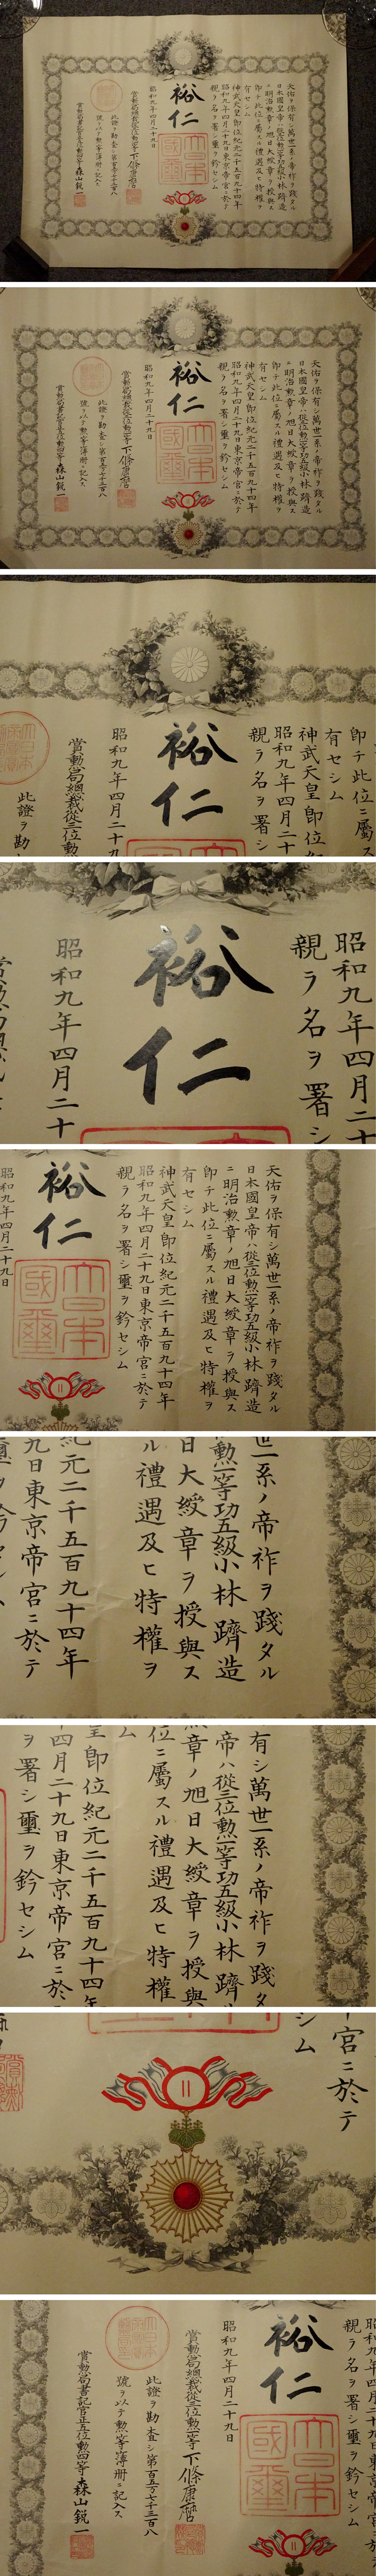 天佑ヲ保有シ萬世一系ノ帝祚ヲ踐タル
日本國皇帝ハ從三位勲一等功五級小林躋造
ニ明治勲章ノ旭日大綬章ヲ授與ス
卽チ此位ニ屬スル禮遇及ヒ特權ヲ
有セシム
神武天皇卽位紀元二千五百九十四年
昭和九年四月二十九日東京帝宮ニ於テ
親ラ名ヲ署シ璽ヲ鈐セシム
裕仁
大日本
國璽
昭和九年四月二十九日
賞勲局總裁從三位勲一等下條康麿
此證ヲ勘査シ第百五万七千三百八
號ヲ以テ勲等簿册ニ記入ス
賞勲局書記官正五位勲四等森山鋭一